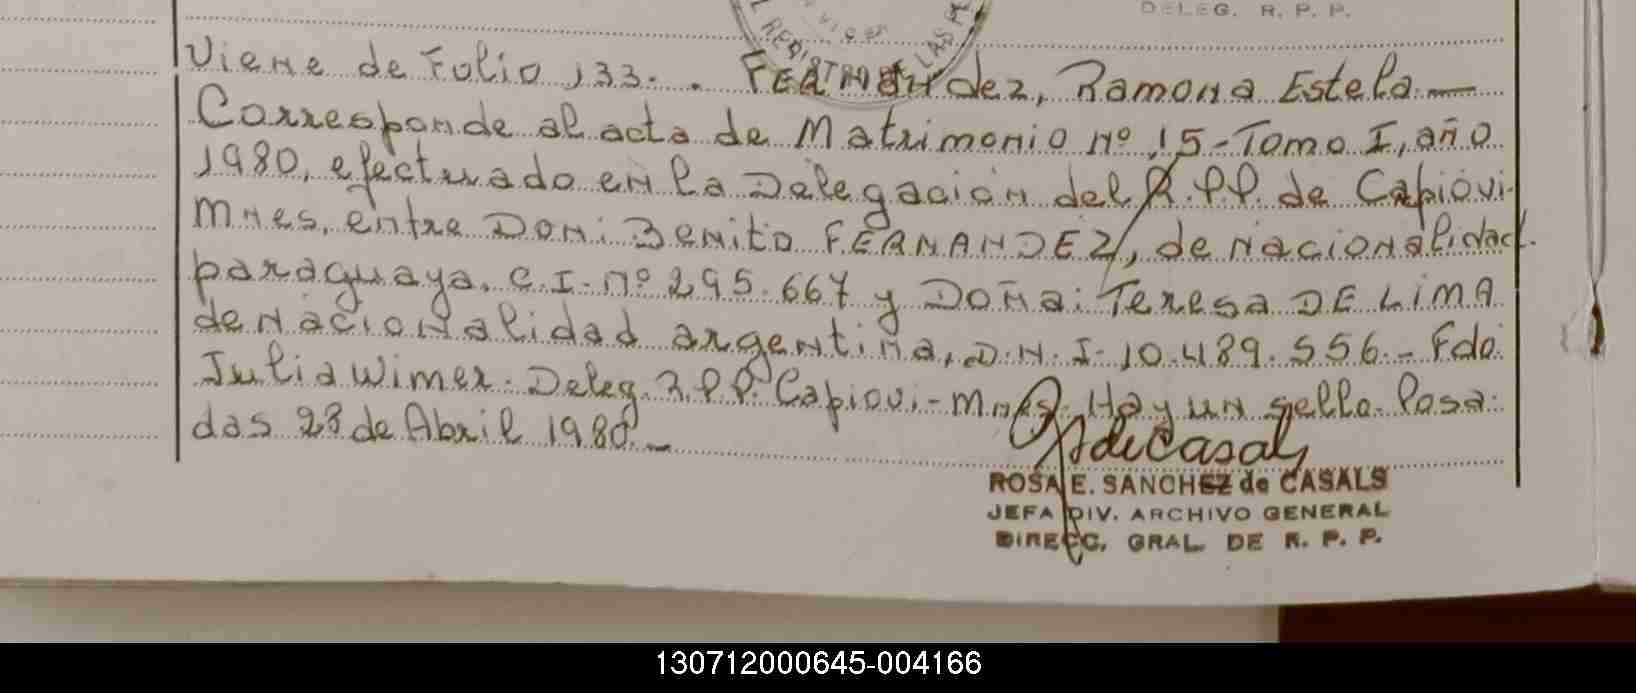 DELEG. R. P. P.
Viene de Folio 133.. FERNANdez, Ramona Estela.—
Corresponde al acta de Matrimonio Nº 15-Tomo I, año
1980, efectuado en la Delegación del R.P.P. de Capiovi-
Mnes, entre Don: Benito FERNANDEZ, de nacionalidad.
paraguaya, C.I-Nº 295.667 y Doña: Teresa DE LIMA
de nacionalidad argentina, D.N.I-10.489.556.- Fdo:
Julia Wimer. Deleg. R.P.P. Capiovi-Mnes. Hay un sello. Posa-
das 23 de Abril 1980.-
ROSA E. SANCHEZ de CASALS
JEFA DIV. ARCHIVO GENERAL
DIRECC. GRAL. DE R. P. P.
130712000645-004166